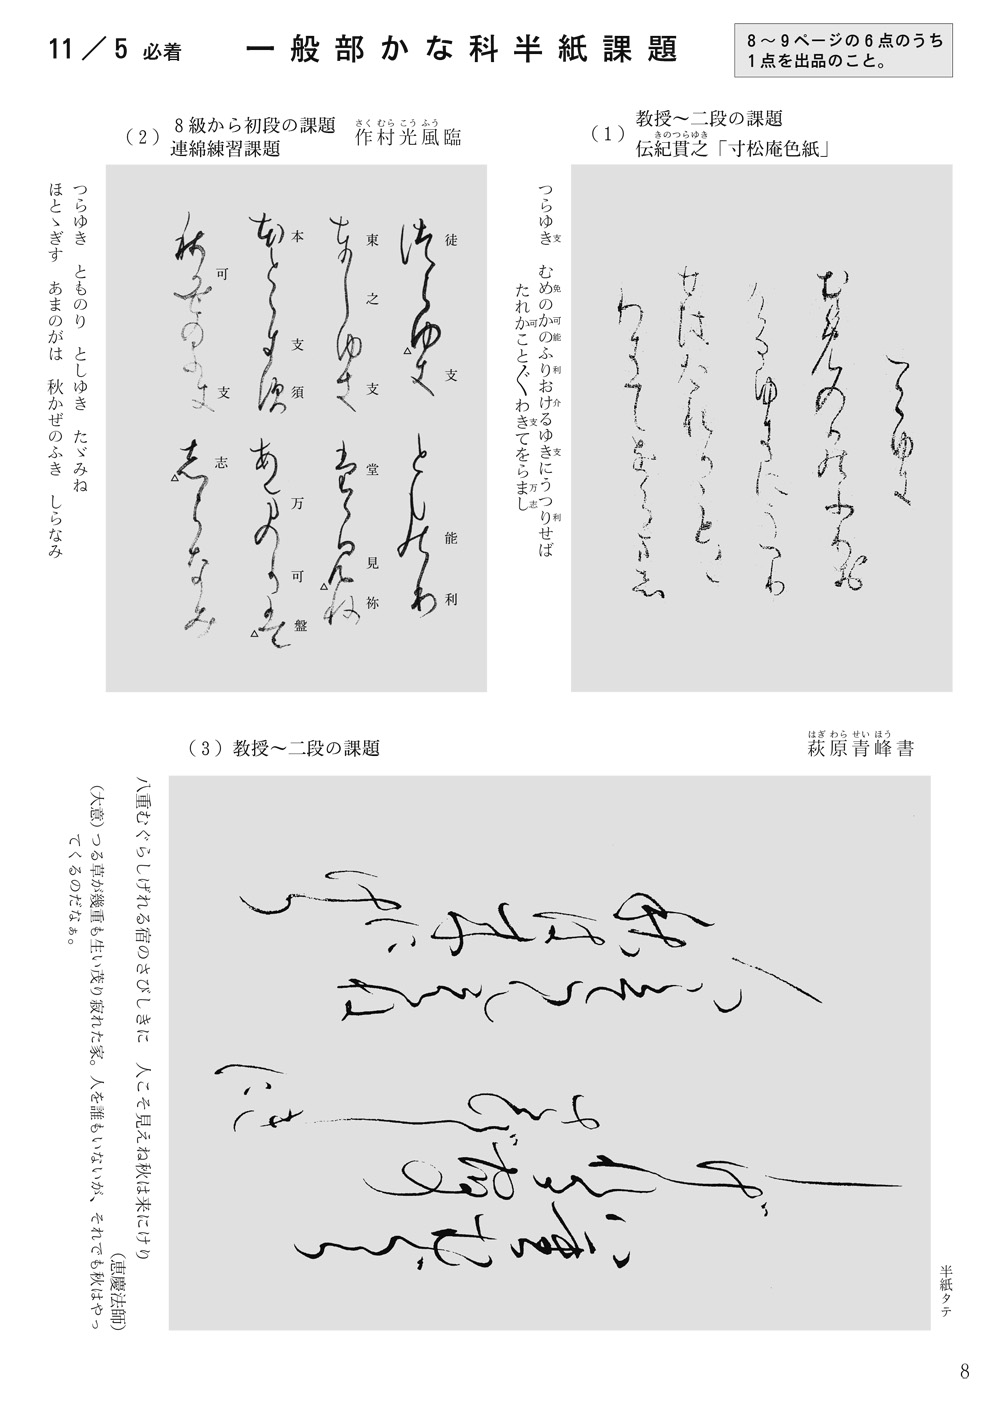 11／5 必着　一般部かな科半紙課題
8～9ページの6点のうち
1点を出品のこと。
（1）
教授～二段の課題
伝紀貫之「寸松庵色紙」
きのつらゆき
つらゆき　むめのかのふりおけるゆきにうつりせば
支　免可能利介支利
たれかこと〴〵わきてをらまし
可支万志
（2）
8級から初段の課題
連綿練習課題
作村光風臨
さくむらこうふう
徒　支　能　利
東　之　支　堂　見　祢
本　支　須　万　可　盤
可　支　志
つらゆき　とものり　としゆき　たゞみね
ほとゝぎす　あまのがは　秋かぜのふき　しらなみ
（3）教授～二段の課題
萩原青峰書
はぎわらせいほう
八重むぐらしげれる宿のさびしきに　人こそ見えね秋は来にけり
（恵慶法師）
（大意）つる草が幾重も生い茂り寂れた家。人を誰もいないが、それでも秋はやっ
てくるのだなぁ。
半紙タテ
8